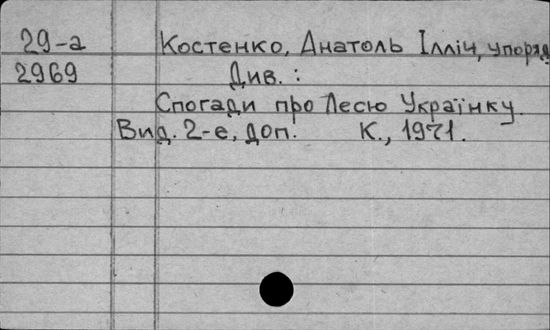 29-а Костенко, Анатоль Ілліч, упоряд
2969 Див.:
Спогади про Лесю Українку.
Вид. 2-е, доп. К., 1971.